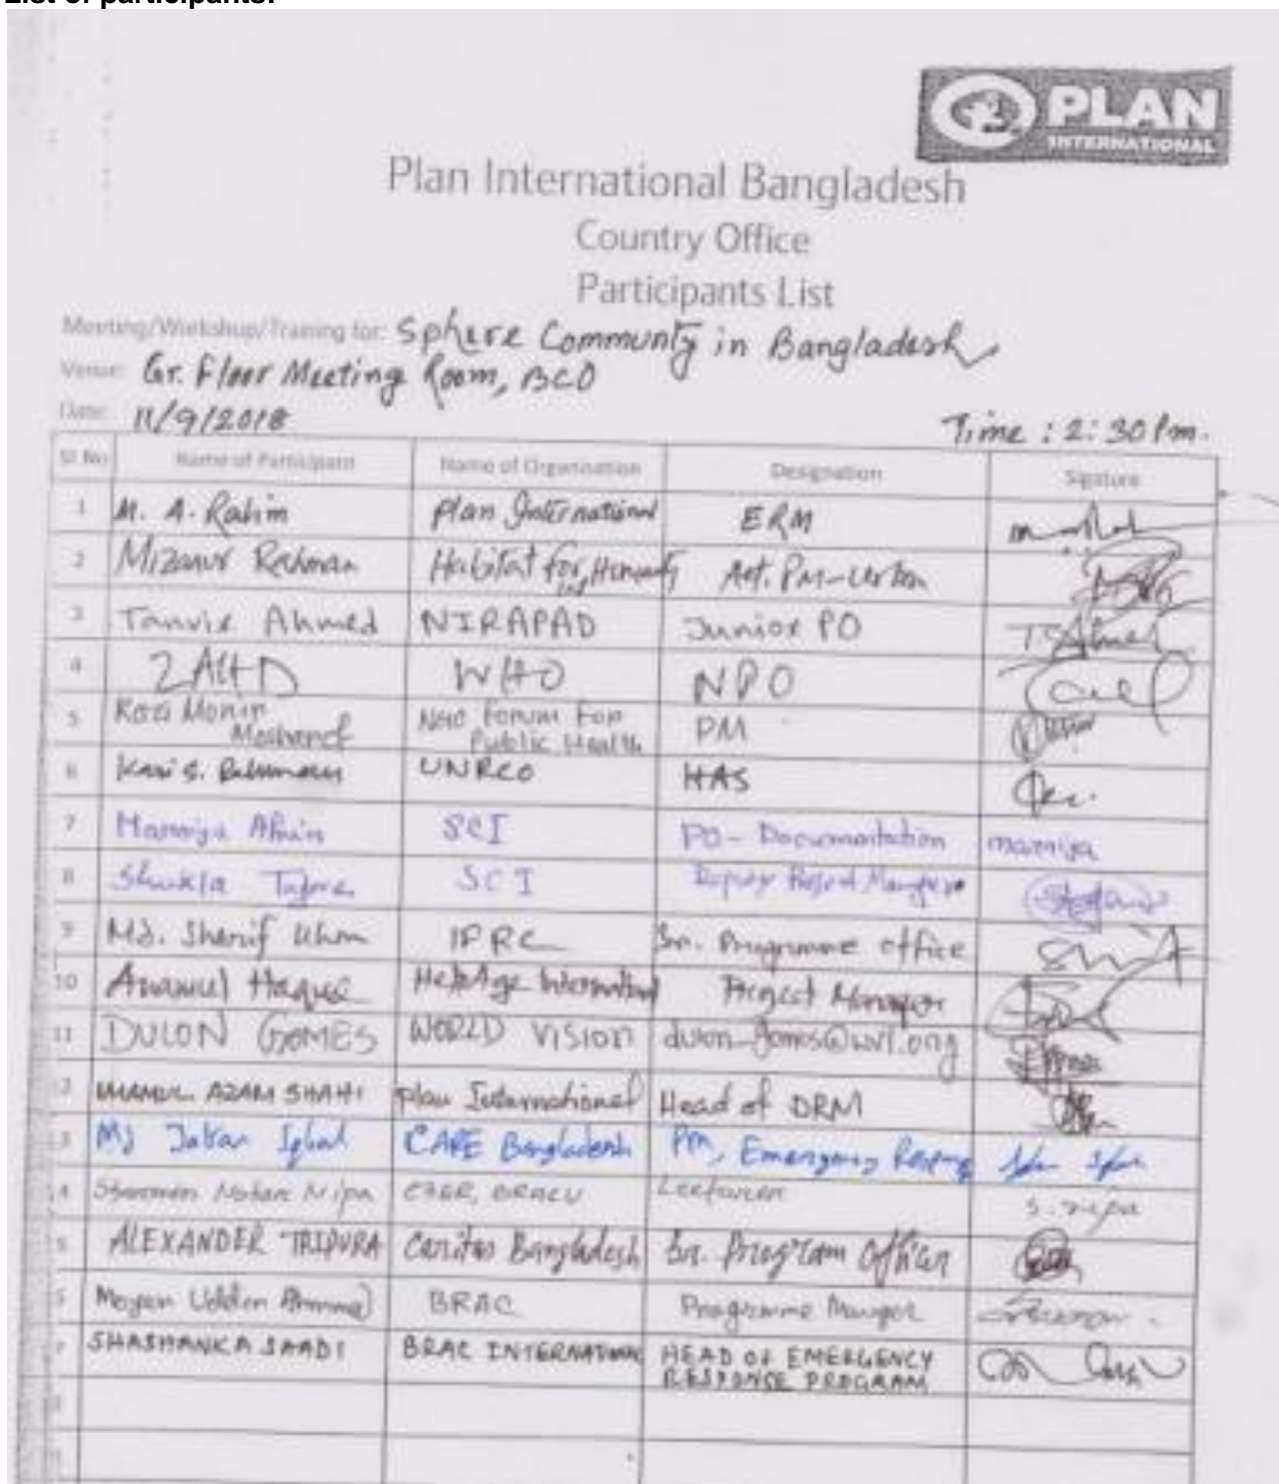 List of participants:
PLAN
INTERNATIONAL
Plan International Bangladesh
Country Office
Participants List
Meeting/Workshop/Training for: Sphere Community in Bangladesh
Venue: Gr. Floor Meeting Room, BCO
Date: 11/9/2018 Time : 2:30 Pm.
Sl No Name of Participant Name of Organisation Designation Signature
1 M. A. Rahim Plan International ERM
2 Mizanur Rahman Habitat for Humanity Int. PM-Urban
3 Tanvir Ahmed NIRAPAD Junior PO TSAhmed
4 ZAHID WHO NPO
5 Kazi Monir NGO Forum For PM
Mosharof Public Health
6 Kazi S. Rahman UNRCO HAS
7 Marniya Afrin SCI PO - Documentation marniya
8 Shukla SCI Deputy Project Manager
9 Md. Sharif Sr. Programme office
10 Anamul Haque HelpAge International Project Manager
11 DULON GOMES WORLD VISION dulon_gomes@wvi.org
12 IMAMUL AZAM SHAHI Plan International Head of DRM
3 Md Jafar Iqbal CARE Bangladesh PM, Emergency Response
4 Sharmin Nahar Nipa BRACU Lecturer S. nipa
5 ALEXANDER TRIPURA Caritas Bangladesh Sr. Program Officer
6 Moyen Uddin Ahmmed BRAC Programme Manager
7 SHASHANKA SAADI BRAC INTERNATIONAL HEAD OF EMERGENCY
RESPONSE PROGRAM